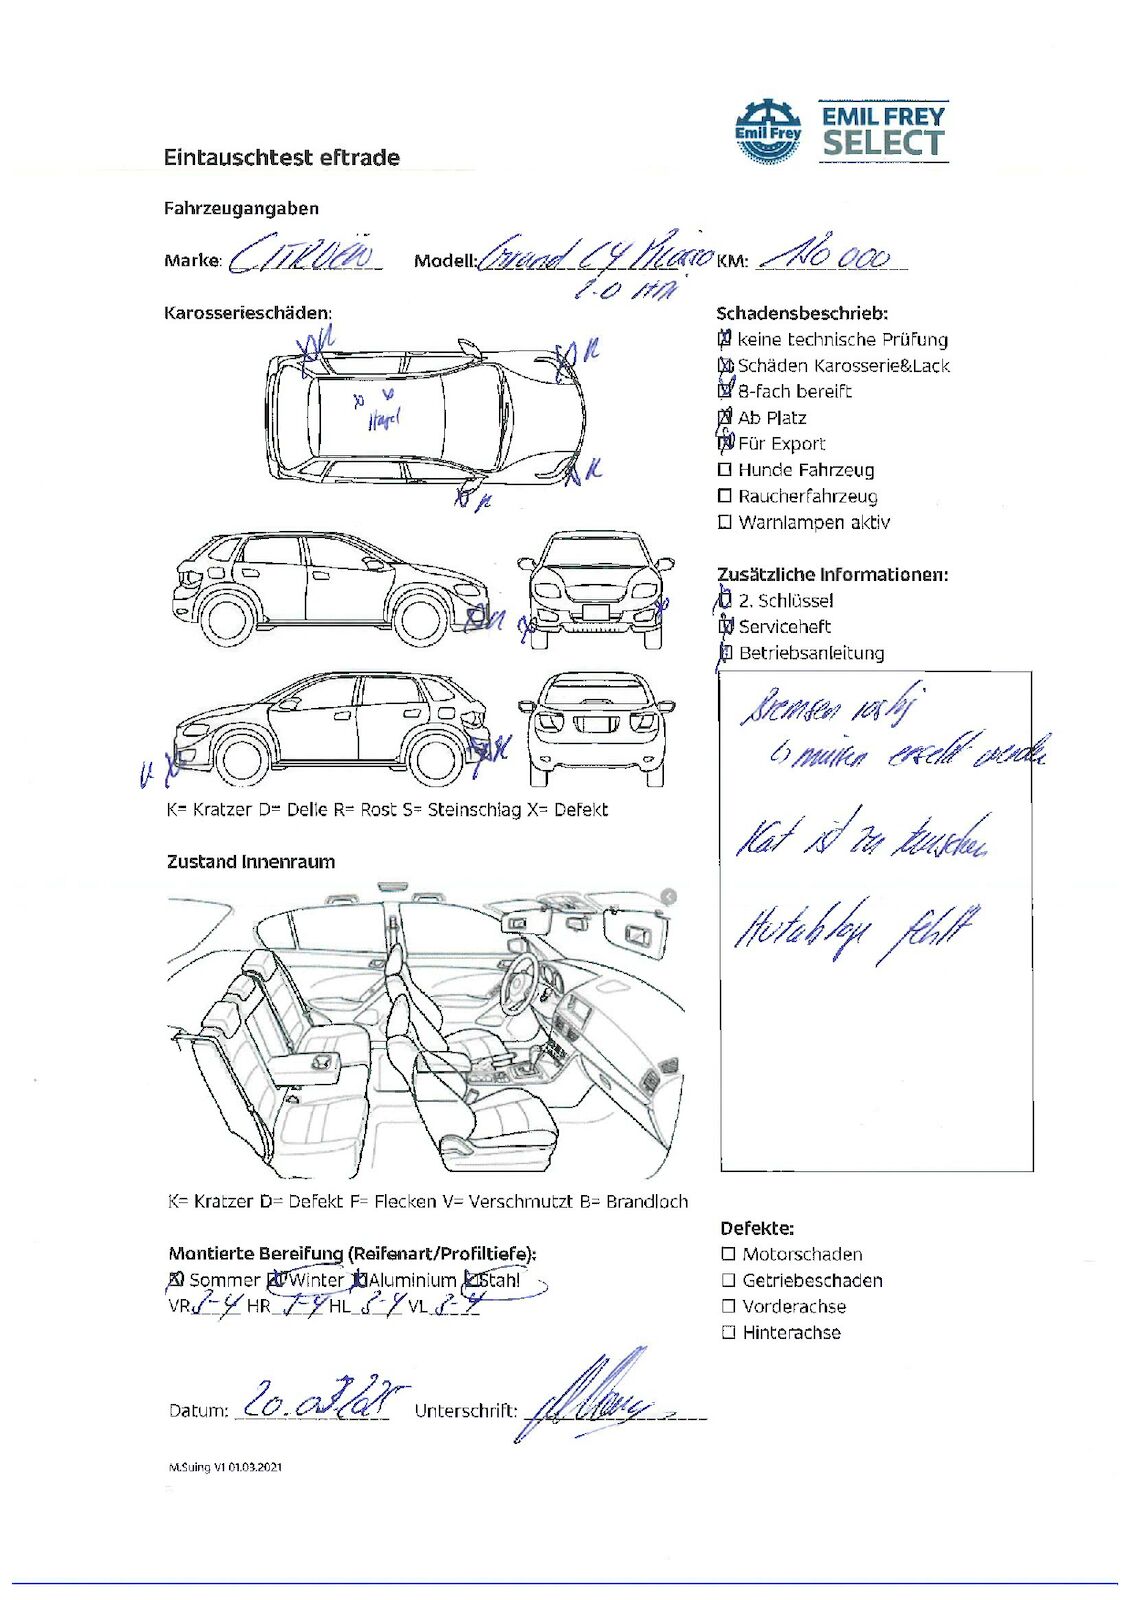 Emil Frey
EMIL FREY
SELECT
Eintauschtest eftrade
Fahrzeugangaben
Marke: CITROËN Modell: Grand C4 Picasso KM: 120 000
2.0 HDi
Karosserieschäden:
K
K
Hagel
K
K
K
K
K
K= Kratzer D= Delle R= Rost S= Steinschlag X= Defekt
Zustand Innenraum
K= Kratzer D= Defekt F= Flecken V= Verschmutzt B= Brandloch
Montierte Bereifung (Reifenart/Profiltiefe):
Sommer Winter Aluminium Stahl
VR 3-4 HR 3-4 HL 3-4 VL 3-4
Datum: 20.03.2025 Unterschrift:
M.Suing V1 01.03.2021
Schadensbeschrieb:
keine technische Prüfung
Schäden Karosserie&Lack
8-fach bereift
Ab Platz
Für Export
Hunde Fahrzeug
Raucherfahrzeug
Warnlampen aktiv
Zusätzliche Informationen:
2. Schlüssel
Serviceheft
Betriebsanleitung
Bremsen rostig
müssen ersetzt werden
Kat ist zu tauschen
Hutablage fehlt
Defekte:
Motorschaden
Getriebeschaden
Vorderachse
Hinterachse